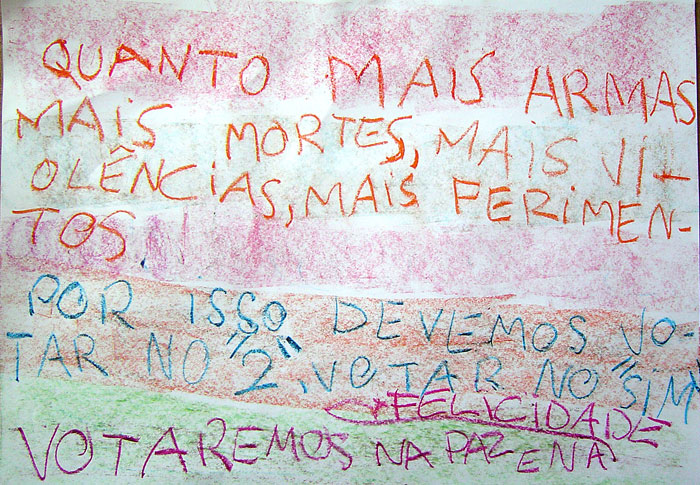 QUANTO MAIS ARMAS
MAIS MORTES, MAIS VI-
OLÊNCIAS, MAIS FERIMEN-
TOS.
POR ISSO DEVEMOS VO-
TAR NO "2", VOTAR NO "SIM"
VOTAREMOS NA PAZ E NA
FELICIDADE